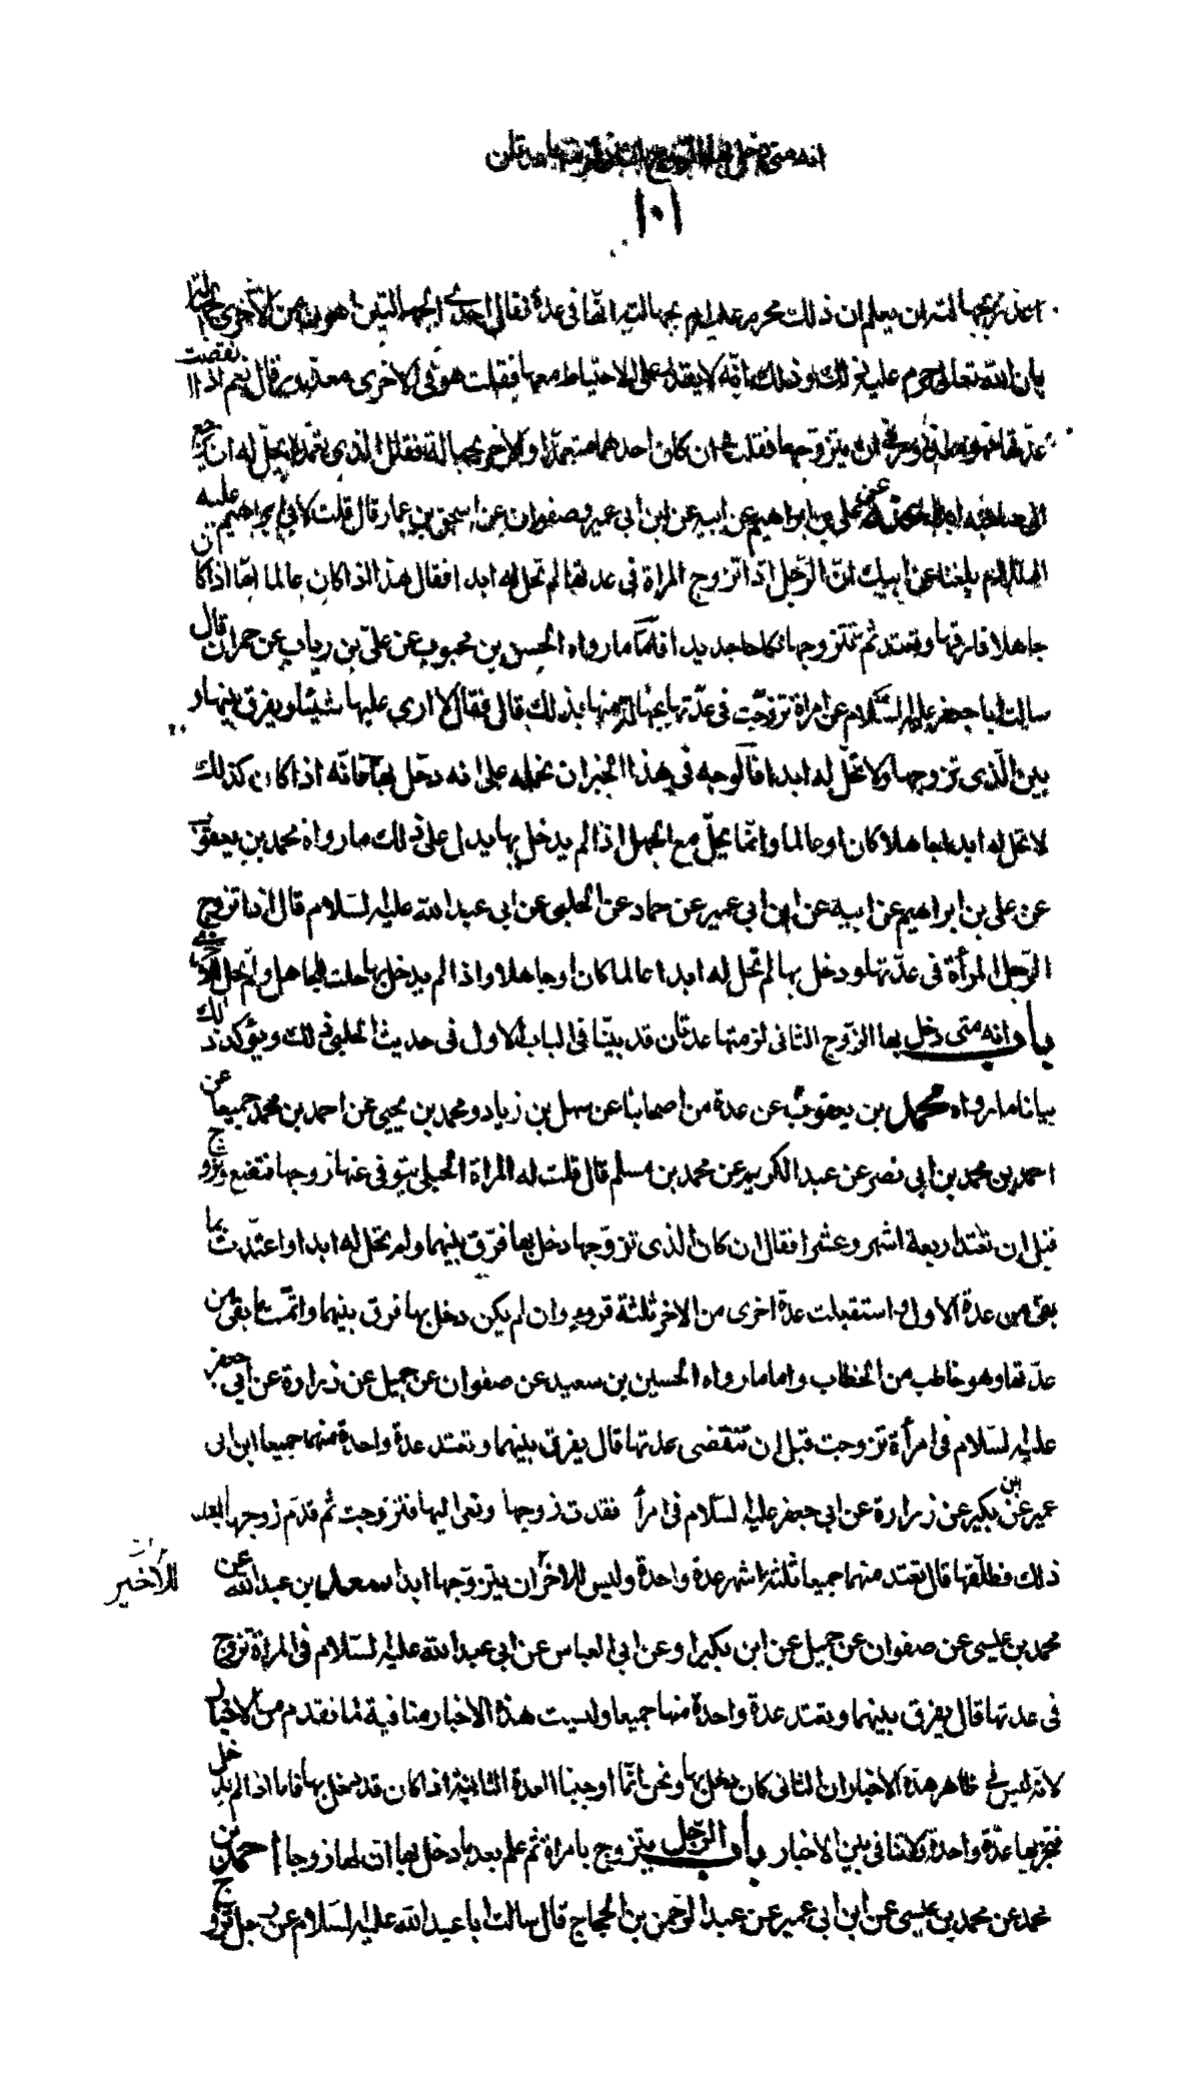 انه متى دخل بها الزوج الثاني لزمتها عدتان
١٠١
اعذر بجهالته ان يعلم ان ذلك محرم عليه ام بجهالته انها في عدة فقال احدى الجهالتين اهون من الاخرى الجهالة
بان الله تعالى حرم عليه ذلك وذلك بانه لا يقدر على الاحتياط معها فقلت هو في الاخرى معذور قال نعم اذا انقضت
عدتها فهو معذور في ان يتزوجها فقلت ان كان احدهما متعمدا والاخر بجهالة فقال الذي تعمد لا يحل له ان يرجع
الى صاحبه ابدا عنه عن علي بن ابراهيم عن ابيه عن ابن ابي عمير وصفوان عن اسحق بن عمار قال قلت لابي ابراهيم عليه
السلام بلغنا عن ابيك ان الرجل اذا تزوج المراة في عدتها لم تحل له ابدا فقال هذا اذا كان عالما فاما اذا كان
جاهلا فارقها وتعتد ثم يتزوجها نكاحا جديدا فاما ما رواه الحسن بن محبوب عن علي بن رياب عن حمران قال
سالت ابا جعفر عليه السلام عن امراة تزوجت في عدتها بجهالة منها بذلك قال فقال لا ارى عليها شيئا ويفرق بينها و
بين الذي تزوجها ولا تحل له ابدا فالوجه في هذا الخبر ان نحمله على انه دخل بها فانه اذا كان كذلك
لا تحل له ابدا جاهلا كان او عالما وانما يحل مع الجهل اذا لم يدخل بها يدل على ذلك ما رواه محمد بن يعقوب
عن علي بن ابراهيم عن ابيه عن ابن ابي عمير عن حماد عن الحلبي عن ابي عبد الله عليه السلام قال اذا تزوج
الرجل المرأة في عدتها ودخل بها لم تحل له ابدا عالما كان او جاهلا واذا لم يدخل بها حلت للجاهل ولم تحل للاخر
باب انه متى دخل بها الزوج الثاني لزمتها عدتان قد بينا في الباب الاول في حديث الحلبي ذلك ويؤكد ذلك
بيانا ما رواه محمد بن يعقوب عن عدة من اصحابنا عن سهل بن زياد ومحمد بن يحيى عن احمد بن محمد جميعا عن
احمد بن محمد بن ابي نصر عن عبد الكريم عن محمد بن مسلم قال قلت له المراة الحبلى يتوفى عنها زوجها فتضع وتزوج
قبل ان تعتد اربعة اشهر وعشرا فقال ان كان الذي تزوجها دخل بها فرق بينهما ولم تحل له ابدا واعتدت بما
بقي من عدة الاول واستقبلت عدة اخرى من الاخر ثلثة قروء وان لم يكن دخل بها فرق بينهما واتمت ما بقي من
عدتها وهو خاطب من الخطاب واما ما رواه الحسين بن سعيد عن صفوان عن جميل عن زرارة عن ابي جعفر
عليه السلام في امرأة تزوجت قبل ان تنقضي عدتها قال يفرق بينهما وتعتد عدة واحدة منهما جميعا ابن ابي
عمير عن ابن بكير عن زرارة عن ابي جعفر عليه السلام في امرأ فقدت زوجها ونعي اليها فتزوجت ثم قدم زوجها بعد
ذلك فطلقها قال تعتد منهما جميعا ثلثة اشهر عدة واحدة وليس للاخر ان يتزوجها ابدا سعد بن عبد الله عن
للاخير
محمد بن عيسى عن صفوان عن جميل عن ابن بكير او عن ابي العباس عن ابي عبد الله عليه السلام في المراة تزوج
في عدتها قال يفرق بينهما وتعتد عدة واحدة منهما جميعا وليست هذه الاخبار منافية لما تقدم من الاخبار
لانه ليس في ظاهر هذه الاخبار ان الثاني كان دخل بها ونحن انما اوجبنا العدة الثانية اذا كان قد دخل بها فاما اذا لم يدخل
فتجزيها عدة واحدة ولا تنافي بين الاخبار باب الرجل يتزوج بامراة ثم علم بعد ما دخل بها ان لها زوجا احمد بن
محمد عن محمد بن عيسى عن ابن ابي عمير عن عبد الرحمن بن الحجاج قال سالت ابا عبد الله عليه السلام عن رجل تزوج